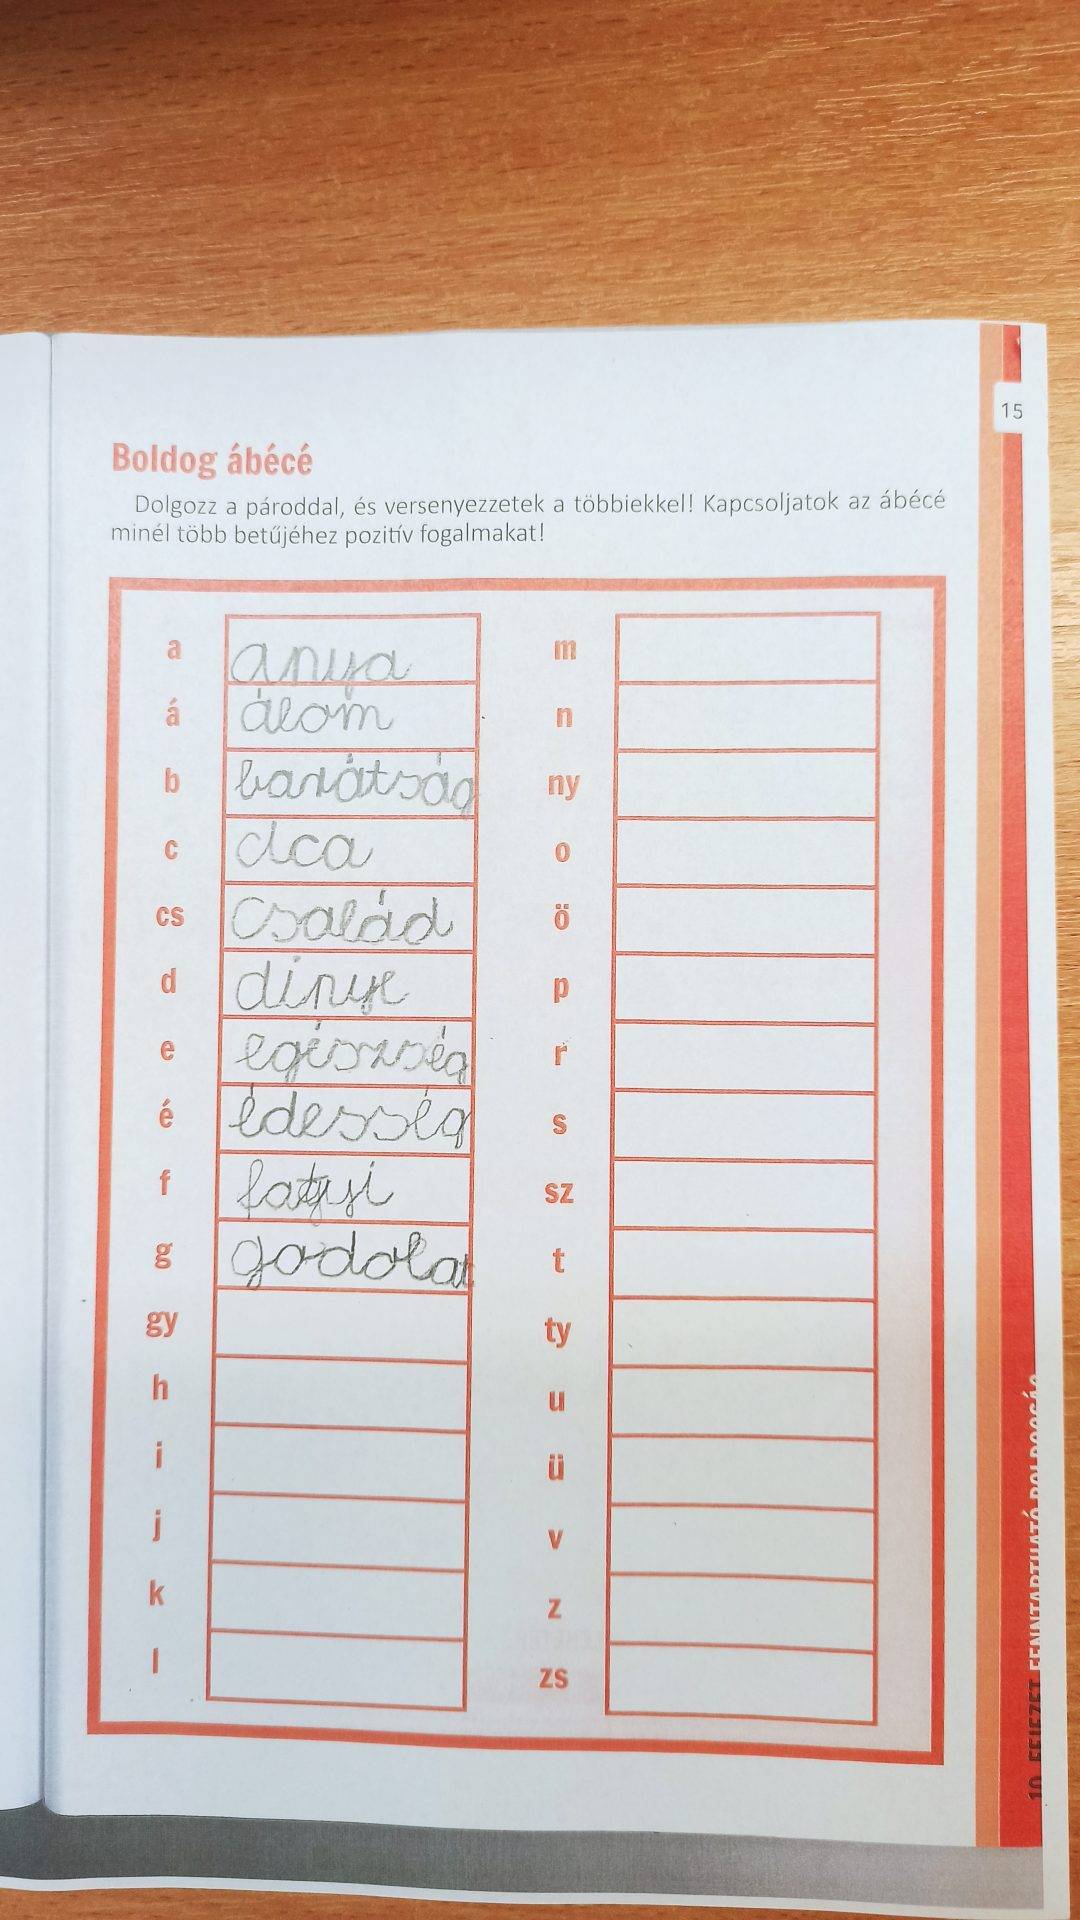 15
Boldog ábécé
Dolgozz a pároddal, és versenyezzetek a többiekkel! Kapcsoljatok az ábécé
minél több betűjéhez pozitív fogalmakat!
a anya
á álom
b barátság
c cica
cs család
d dinye
e egészség
é édesség
f fagyi
g godolat
gy
h
i
j
k
l
m
n
ny
o
ö
p
r
s
sz
t
ty
u
ü
v
z
zs
10. FEJEZET FENNTARTHATÓ BOLDOGSÁG